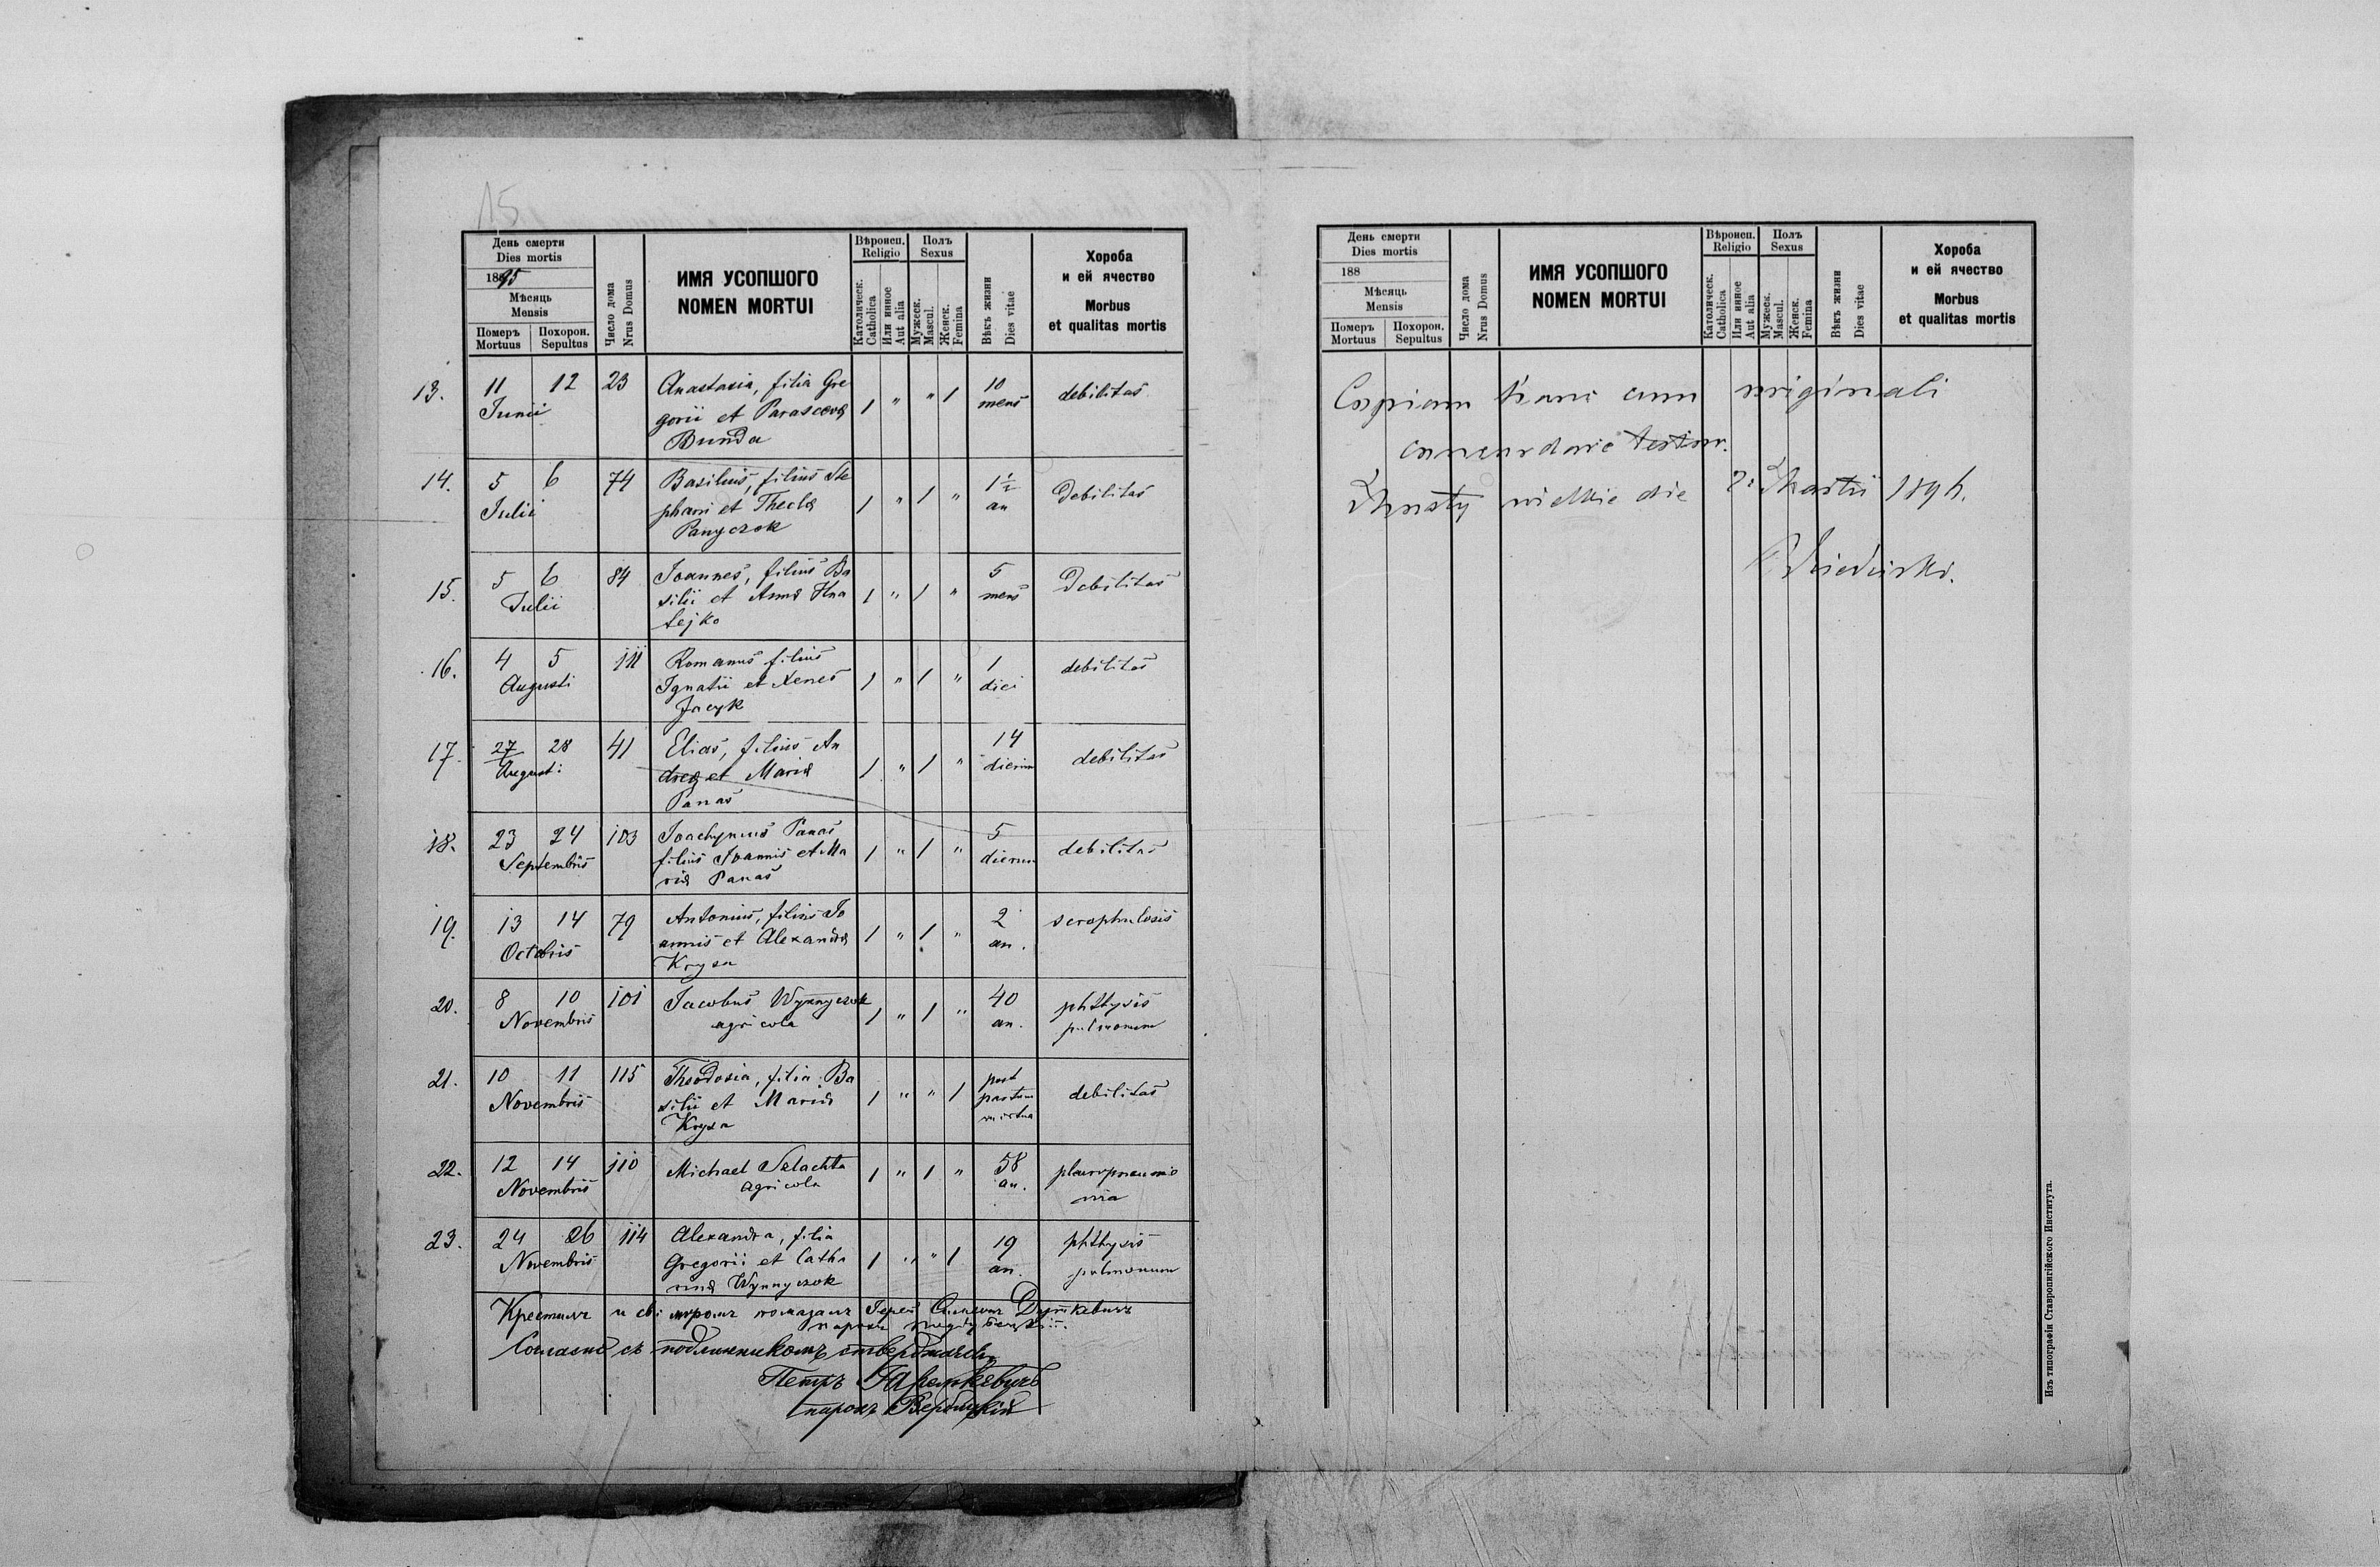 15
День смерти
Dies mortis
1895
Мѣсяць
Mensis
Померъ Похорон.
Mortuus Sepultus
Число дома
Nrus Domus
ИМЯ УСОПШОГО
NOMEN MORTUI
Вѣроисп.
Religio
Католическ.
Catholica
Или инное
Aut alia
Полъ
Sexus
Мужеск.
Mascul.
Женск.
Femina
Вѣкъ жизни
Dies vitae
Хороба
и ей ячество
Morbus
et qualitas mortis
13. 11 12 23 Anastasia, filia Gre 10 debilitas
Junii gorii et Parascevæ 1 " " 1 mens
Bunda
14. 5 6 74 Basilius, filius Ste 1½ debilitas
Julii phani et Theclæ 1 " 1 " an
Panyczok
15. 5 6 84 Joannes, filius Ba 5 debilitas
Julii silii et Annæ Hna 1 " 1 " mens
tejko
16. 4 5 111 Romanus filius 1 debilitas
Augusti Ignatii et Xenes 1 " 1 " diei
Jacyk
17. 27 28 41 Elias, filius An 14 debilitas
Augusti dreæ et Mariæ 1 " 1 " dierum
Panas
18. 23 24 103 Joachymus Panas 5 debilitas
Septembris filius Joannis et Ma 1 " 1 " dierum
riæ Panas
19. 13 14 79 Antonius, filius Jo 2 scrophulosis
Octobris annis et Alexandræ 1 " 1 " an.
Krysa
20. 8 10 101 Jacobus Wynnyczok 40 phthysis
Novembris agricola 1 " 1 " an. pulmonum
21. 10 11 115 Theodosia, filia Ba post debilitas
Novembris silii et Mariæ 1 " " 1 partum
Krysa mortua
22. 12 14 110 Michael Szlachta 1 " 1 " 58 pleuropneumo
Novembris agricola an. nia
23. 24 26 114 Alexandra, filia 19 phthysis
Novembris Gregorii et Catha 1 " " 1 an. pulmonum
rinæ Wynnyczok
Крестилъ и св. мѵромъ помазалъ Іерей
парохъ
Согласно съ подлинникомъ стверджаєтъ
Петръ
парохъ Вербицкій
День смерти
Dies mortis
188
Мѣсяць
Mensis
Померъ Похорон.
Mortuus Sepultus
Число дома
Nrus Domus
ИМЯ УСОПШОГО
NOMEN MORTUI
Вѣроисп.
Religio
Католическ.
Catholica
Или инное
Aut alia
Полъ
Sexus
Мужеск.
Mascul.
Женск.
Femina
Вѣкъ жизни
Dies vitae
Хороба
и ей ячество
Morbus
et qualitas mortis
Copiam hanc cum originali
concordare testor.
wielkie die Martii 1896.
Изъ типографіи Ставропигійского Института.